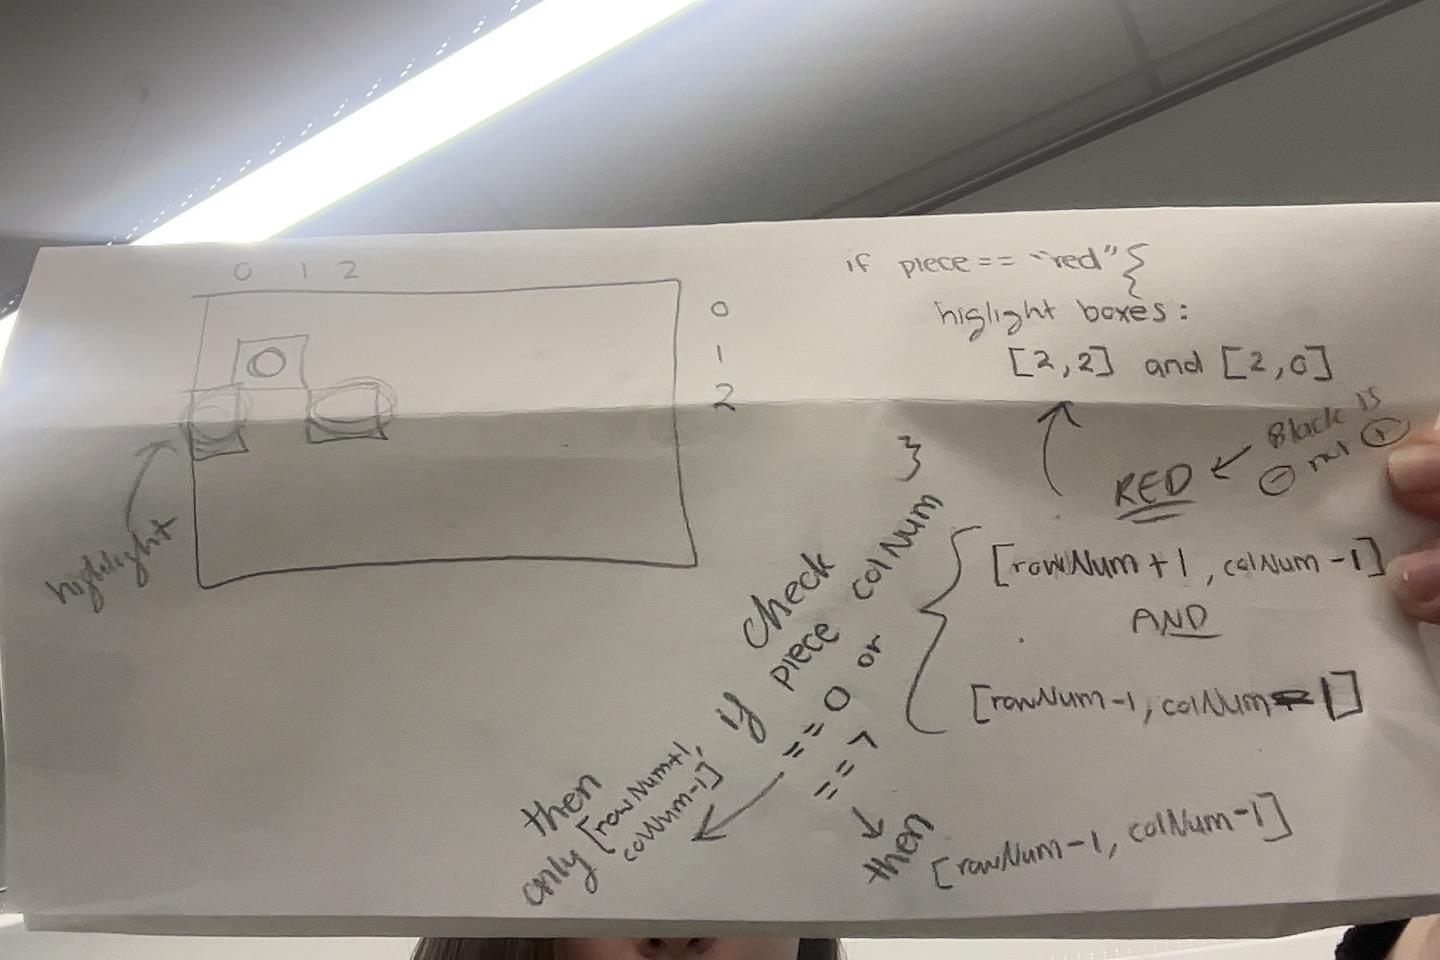 0 1 2
0
1
2
highlight
if piece == "red" {
higlight boxes:
[2,2] and [2,0]
}
RED
Black is
- not +
[rowNum+1, colNum-1]
AND
[rowNum-1, colNum-1]
check
if piece colNum
== 0 or
== 7
then
only [rowNum+1,
colNum-1]
then
[rowNum-1, colNum-1]